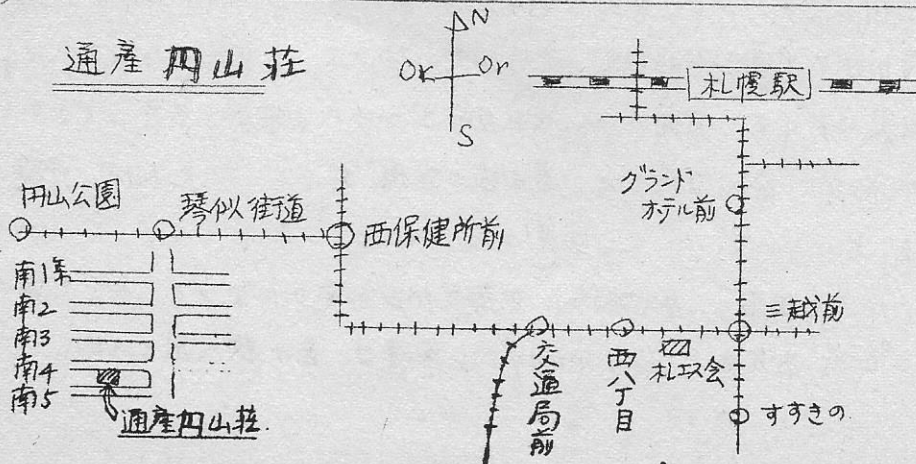 通産円山荘
N
Ok
Or
S
札幌駅
円山公園
琴似街道
西保健所前
グランド
ホテル前
南1条
南2
南3
南4
南5
通産円山荘.
三越前
交通局前
西八丁目
札エス会
すすきの